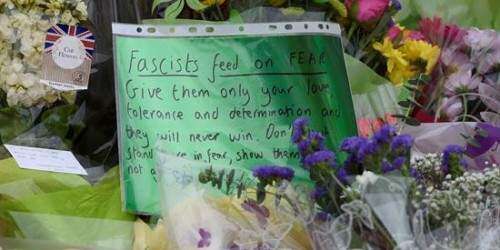 Fascists feed on FEAR
Give them only your love
tolerance and determination and
they will never win. Don't
stand in fear, show them
not